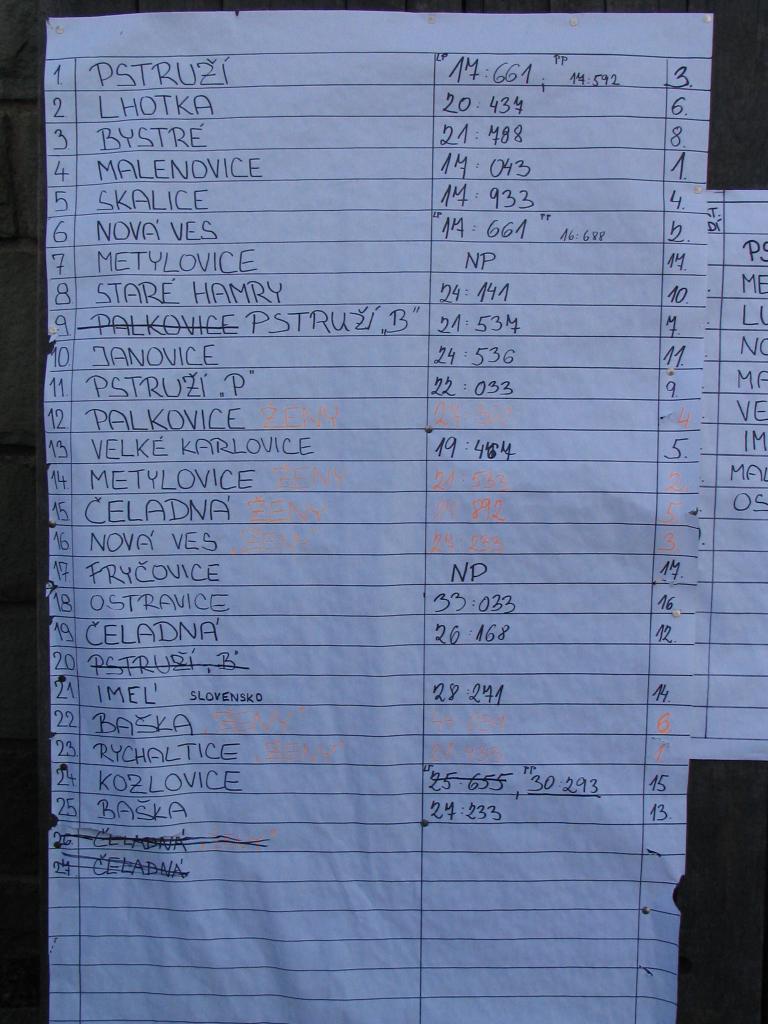 1. PSTRUŽÍ LP 17:661 ; PP 17:592 3.
2 LHOTKA 20:437 6.
3 BYSTRÉ 21:788 8.
4 MALENOVICE 17:043 1.
5 SKALICE 17:933 4.
6 NOVÁ VES LP 17:661 PP 16:688 2.
7 METYLOVICE NP 17.
8 STARÉ HAMRY 24:141 10.
9 PALKOVICE PSTRUŽÍ „B" 21:537 7.
10 JANOVICE 24:536 11.
11. PSTRUŽÍ „P" 22:033 9.
12 PALKOVICE ŽENY 4
13 VELKÉ KARLOVICE 19: 5.
14. METYLOVICE ŽENY 21:533 2.
15 ČELADNÁ ŽENY 892 5.
16 NOVÁ VES „ŽENY" 24:233 3.
17 FRYČOVICE NP 17.
18 OSTRAVICE 33:033 16
19 ČELADNÁ 26:168 12.
20 PSTRUŽÍ „B"
21 IMEL' SLOVENSKO 28:271 14.
22 BAŠKA „ŽENY" 6
23 RYCHALTICE „ŽENY" 1
24 KOZLOVICE LP 25:655 , PP 30:293 15
25 BAŠKA 27:233 13.
26 ČELADNÁ „ŽENY"
27 ČELADNÁ
DÍT.
PS
ME
LU
NO
MA
VE
IM
MAL
OS